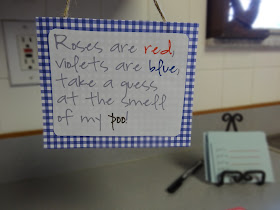 Roses are red,
violets are blue,
take a guess
at the smell
of my poo!